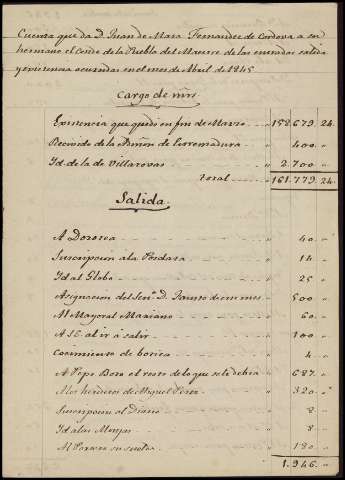 Cuenta que da D. Juan de Mata Fernandez de Cordova a su
hermano el Conde de la Puebla del Maestre de las entradas salida
y existencia ocurridas en el mes de Abril de 1845
Cargo de mrs
Existencia que quedó en fin de Marzo 158.679 24
Recivido de la Admon de Estremadura 400 "
Id de la de Villarrovas 2.700 "
Total 161.779 24
Salida.
A Dorotea 40 "
Suscripcion á la Posdata 14 "
Id al Globo 25 "
Asignacion del Señ.º D. Fausto de este mes 500 "
Al Mayoral Mariano 60 "
A S.E. al ir á salir 100 "
Cocimiento de borica 4 "
A Pepe Boro el resto de lo que se le debia 687 "
A los herederos de Miguel Perez 320 "
Suscripcion al Diario 8 "
Id a las Monjas 8 "
Al Portero su sueldo 180 "
1.946 "